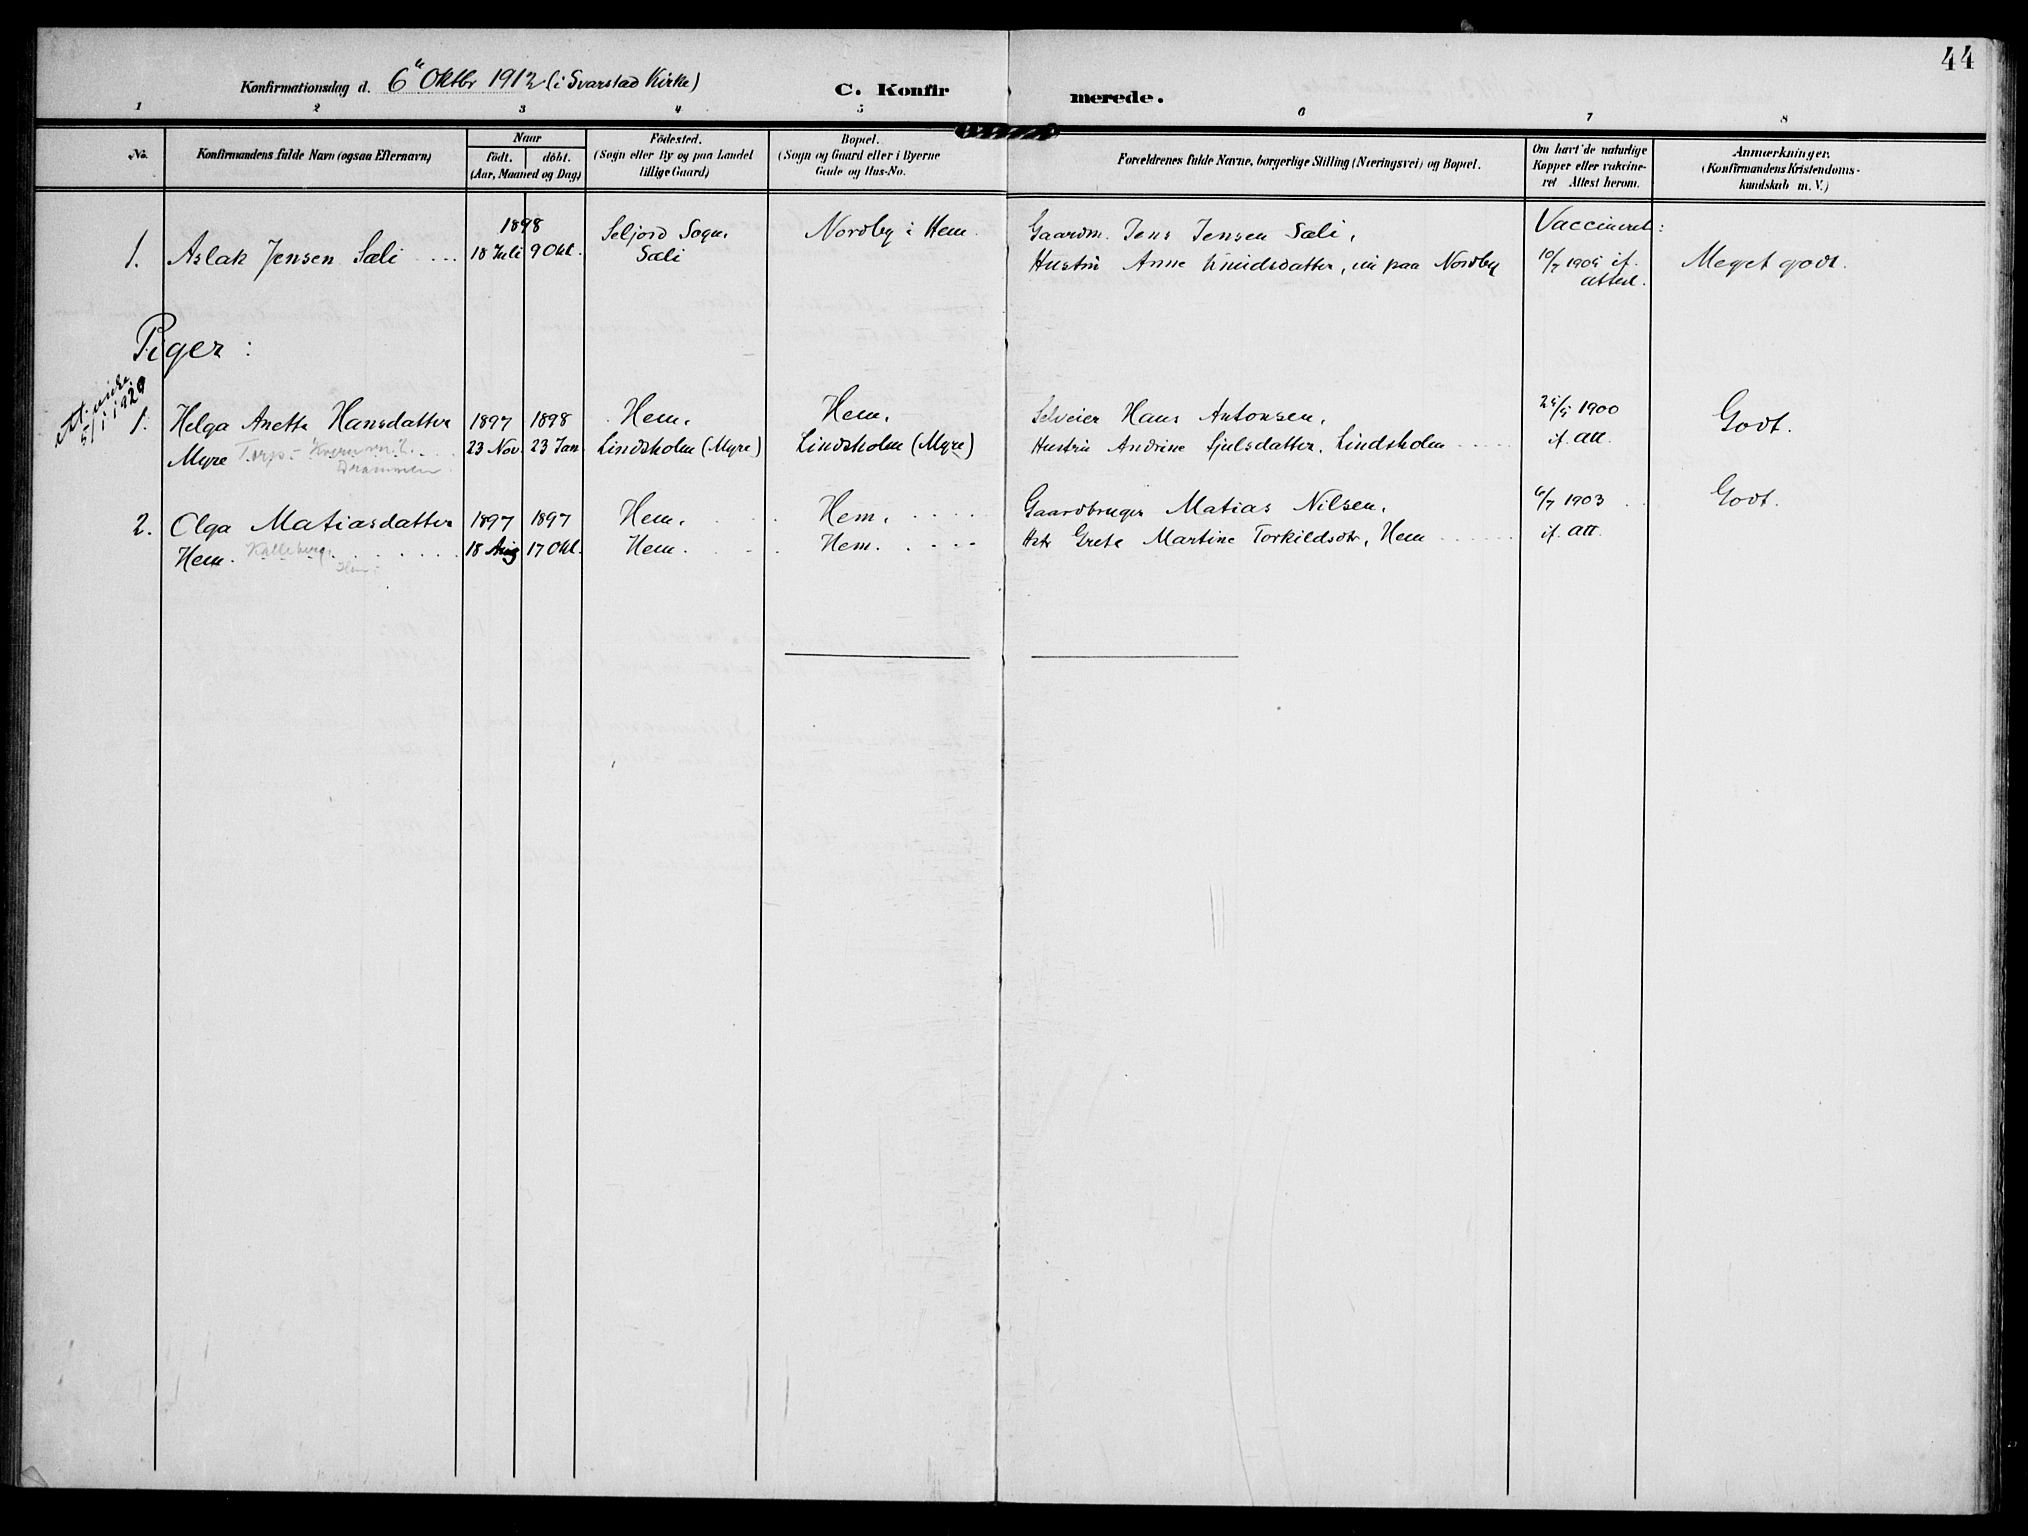 44
Konfirmationsdag d. 6te Oktbr 1912 (i Svarstad Kirke)
C. Konfirmerede.
1 2 3 4 5 6 7 8
No.
Konfirmandens fulde Navn (ogsaa Efternavn)
Naar
födt. döbt.
(Aar, Maaned og Dag)
Födested.
(Sogn eller By og paa Landet
tillige Gaard)
Bopæl.
(Sogn og Gaard eller i Byerne
Gade og Hus-No.
Forældrenes fulde Navne, borgerlige Stilling (Næringsvei) og Bopæl.
Om havt de naturlige
Kopper eller vakcine-
ret Attest herom.
Anmærkninger.
(Konfirmandens Kristendoms-
kundskab m. V.)
1. Aslak Jensen Sæli
1898
18 Juli 9 Okt.
Seljord Sogn.
Sæli
Nordby i Hem.
Gaardm. Jens Jensen Sæli,
Hustru Anne Knudsdatter, nu paa Nordby
Vaccineret:
10/7 1905 if.
attest.
Meget godt.
Piger:
Att.
5/1 1929
1. Helga Anette Hansdatter
Myre Torp-
Drammen
1897 1898
23 Nov. 23 Jan
Hem.
Lindsholm (Myre)
Hem.
Lindsholm (Myre)
Selveier Hans Antonsen,
Hustru Andrine Sjulsdatter, Lindsholm
25/5 1900
if. att.
Godt.
2. Olga Matiasdatter
Hem. Kalleberg
1897 1897
18 Aug 17 Okt.
Hem.
Hem.
Hem.
Hem.
Gaardbruger Matias Nilsen,
Hstr Grete Martine Torkildsdtr, Hem
6/7 1903
if. att.
Godt.